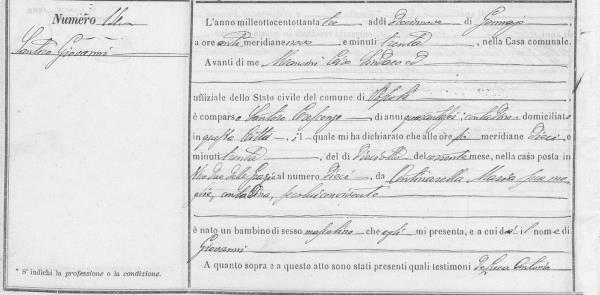 Numero 14
Santoro Giovanni
L'anno milleottocentottanta tre, addì Diecinove di Gennajo
a ore anti meridiane nove e minuti trenta, nella Casa comunale.
Avanti di me Mancini Sindaco
uffiziale dello Stato civile del comune di
è comparso Santoro, di anni quarantasei, contadino domiciliato
in questa Città, il quale mi ha dichiarato che alle ore meridiane Dieci
minuti trenta, del dì Dieciotto del corrente mese, nella casa posta in
Via delle al numero Dieci, da Maria sua mo-
glie, contadina, seco lui convivente
è nato un bambino di sesso mascolino che egli mi presenta, e a cui dà il nome di
Giovanni
A quanto sopra e a questo atto sono stati presenti quali testimoni de Luca Antonio
* S' indichi la professione o la condizione.